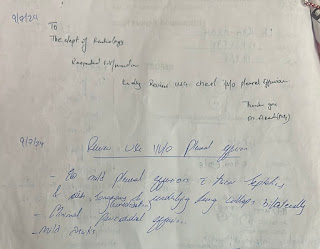 9/2/24
To
The dept of Radiology
Respected Sir/madam
Kindly Review USG chest i/v/o pleural effusion
Thank you
9/2/24
Review USG i/v/o Pleural effusion
- mild pleural effusion c few septations
& underlying lung collapse bilaterally
- Minimal pericardial effusion
- Mild ascites